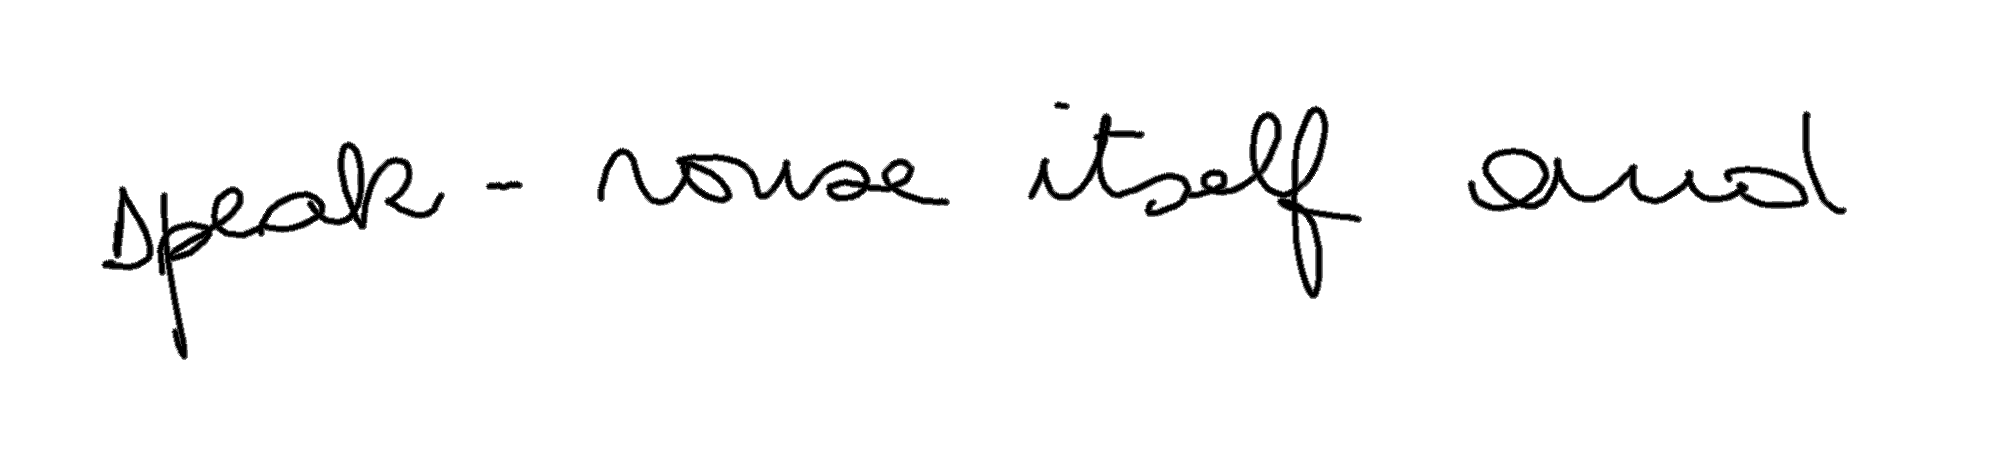 speak - rouse itself and